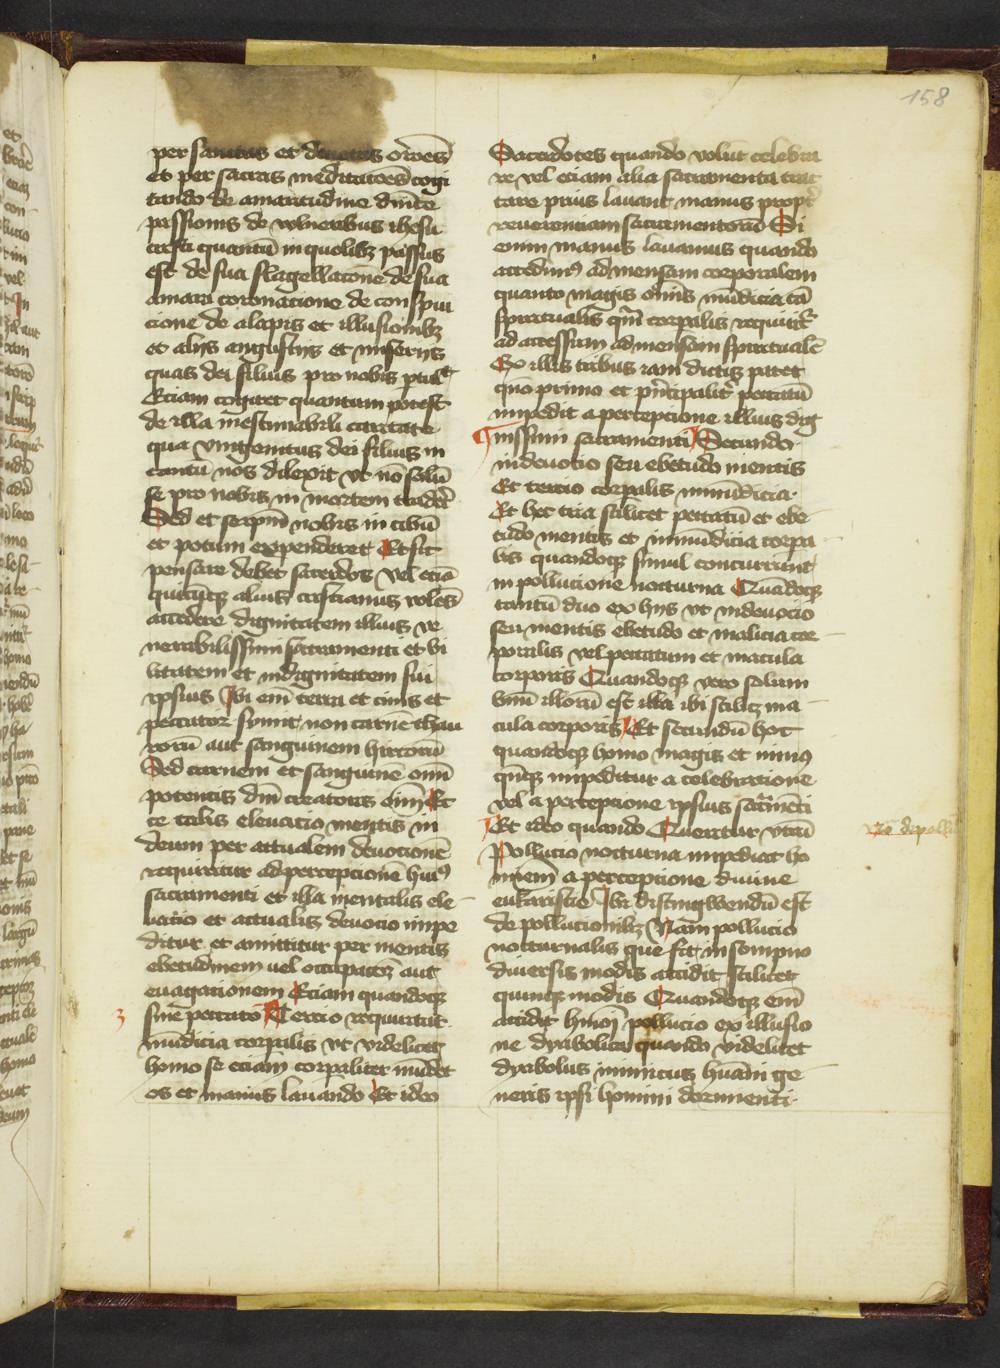 158
per sanctas et deuotas oroes
et per sacras meditacoes cogi
tando de amaritudine dnice
passionis de wlneribus ihesu
cristi quantu in quolibz passus
est de sua flagellacone de sua
amara coronacione de conspui
cione de alapis et illusionibz
et alijs angustijs et miserijs
quas dei filius pro nobis ptul'
Eciam cogitet quantum potest
de illa inestimabili caritate
qua vnigenitus dei filius in
tantu nos dilexit vt no solu
se pro nobis in mortem trader'
Sed et seipm nobis in cibu
et potum expenderet Et sic
pensare debet sacerdos vel ecia
quicuqz alius cristianus voles
accedere dignitatem illius ve
nerabilissimi sacramenti et vi
litatem et indignitatem sui
ipsius Ibi em terra et cinis et
peccator sumit non carne thau
roru aut sanguinem hircoru
Sed carnem et sanguine omi
potentis dni creatoris oim Et
te talis eleuacio mentis in
deum per actualem deuocione
requiritur ad percepcione hui9
sacramenti et illa mentalis ele
uatio et actualis deuocio impe
ditur et amittitur per mentis
ebetudinem vel occupacoz aut
euagacionem Eciam quandoqz
3 sine peccato Tercio requiritur
mudicia corpalis vt videlicet
homo se eciam corpaliter mudet
os et manus lauando Et ideo
Sacerdotes quando volut celebra
re vel eciam alia sacramenta trac
tare prius lauant manus propt'
reuerenciam sacramentoru Si
enim manus lauamus quando
accedim9 ad mensam corporalem
quanto magis omis mudicia ta
spiritualis qm corpalis requirit'
ad accessum ad mensam spirituale
Ex illis tribus iam dictis patet
quo primo et pncipalit' peccatu
impedit a percepcione illius dig
nissimi sacramenti Secundo
indeuocio seu ebetudo mentis
Et tercio corpalis immudicia
Et hec tria scilicet peccatu et ebe
tudo mentis et immudicia corpa
lis quandoqz simul concurrunt
in pollucione nocturna Quadoqz
tantu duo ex hijs vt indeuocio
seu mentis ebetudo et malicia cor
poralis vel peccatum et macula
corporis Quandoqz vero solum
vnu illoru est illa ibi scilicz ma
cula corporis Et secundu hoc
quandoqz homo magis et min9
qnqz impeditur a celebracione
vel a percepcione ipsius sacmeti
Et ideo quando Queritur vtru
Pollucio nocturna impediat ho
minem a percepcione diuine
eukaristie Ibi distingwendu est
de pollucionibz Nam pollucio
nocturnalis que fit in sompno
diuersis modis accidit scilicet
quinqz modis Quandoqz em
accidit hmoi pollucio ex illusio
ne dyabolica quando videlicet
dyabolus inimicus huani ge
neris ipsi homini dormienti
de pollu